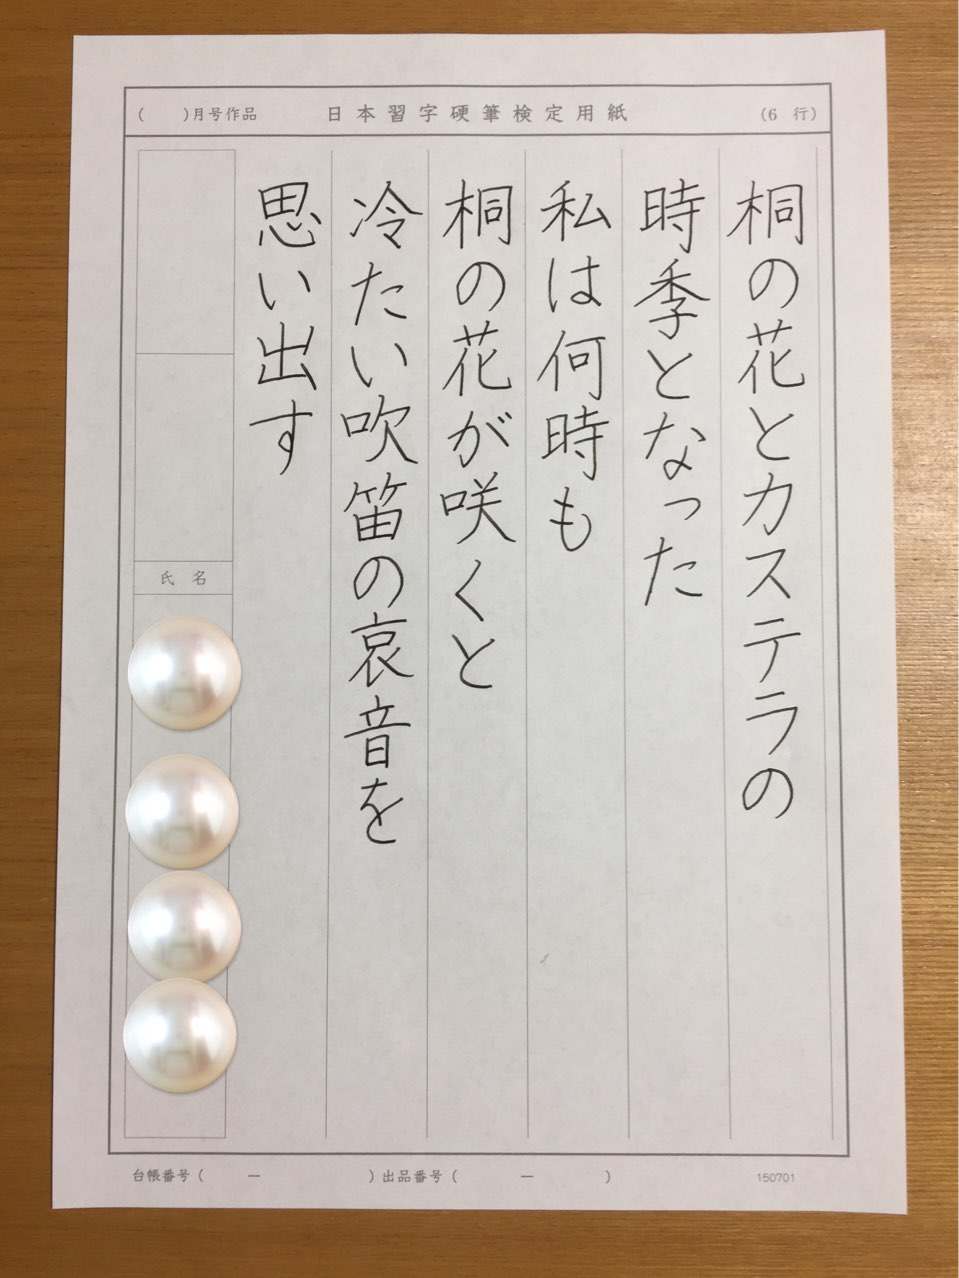 ( )月号作品 日本習字硬筆検定用紙 (6 行)
桐の花とカステラの
時季となった
私は何時も
桐の花が咲くと
冷たい吹笛の哀音を
思い出す
氏 名
台帳番号( ー )出品番号( ー )
150701